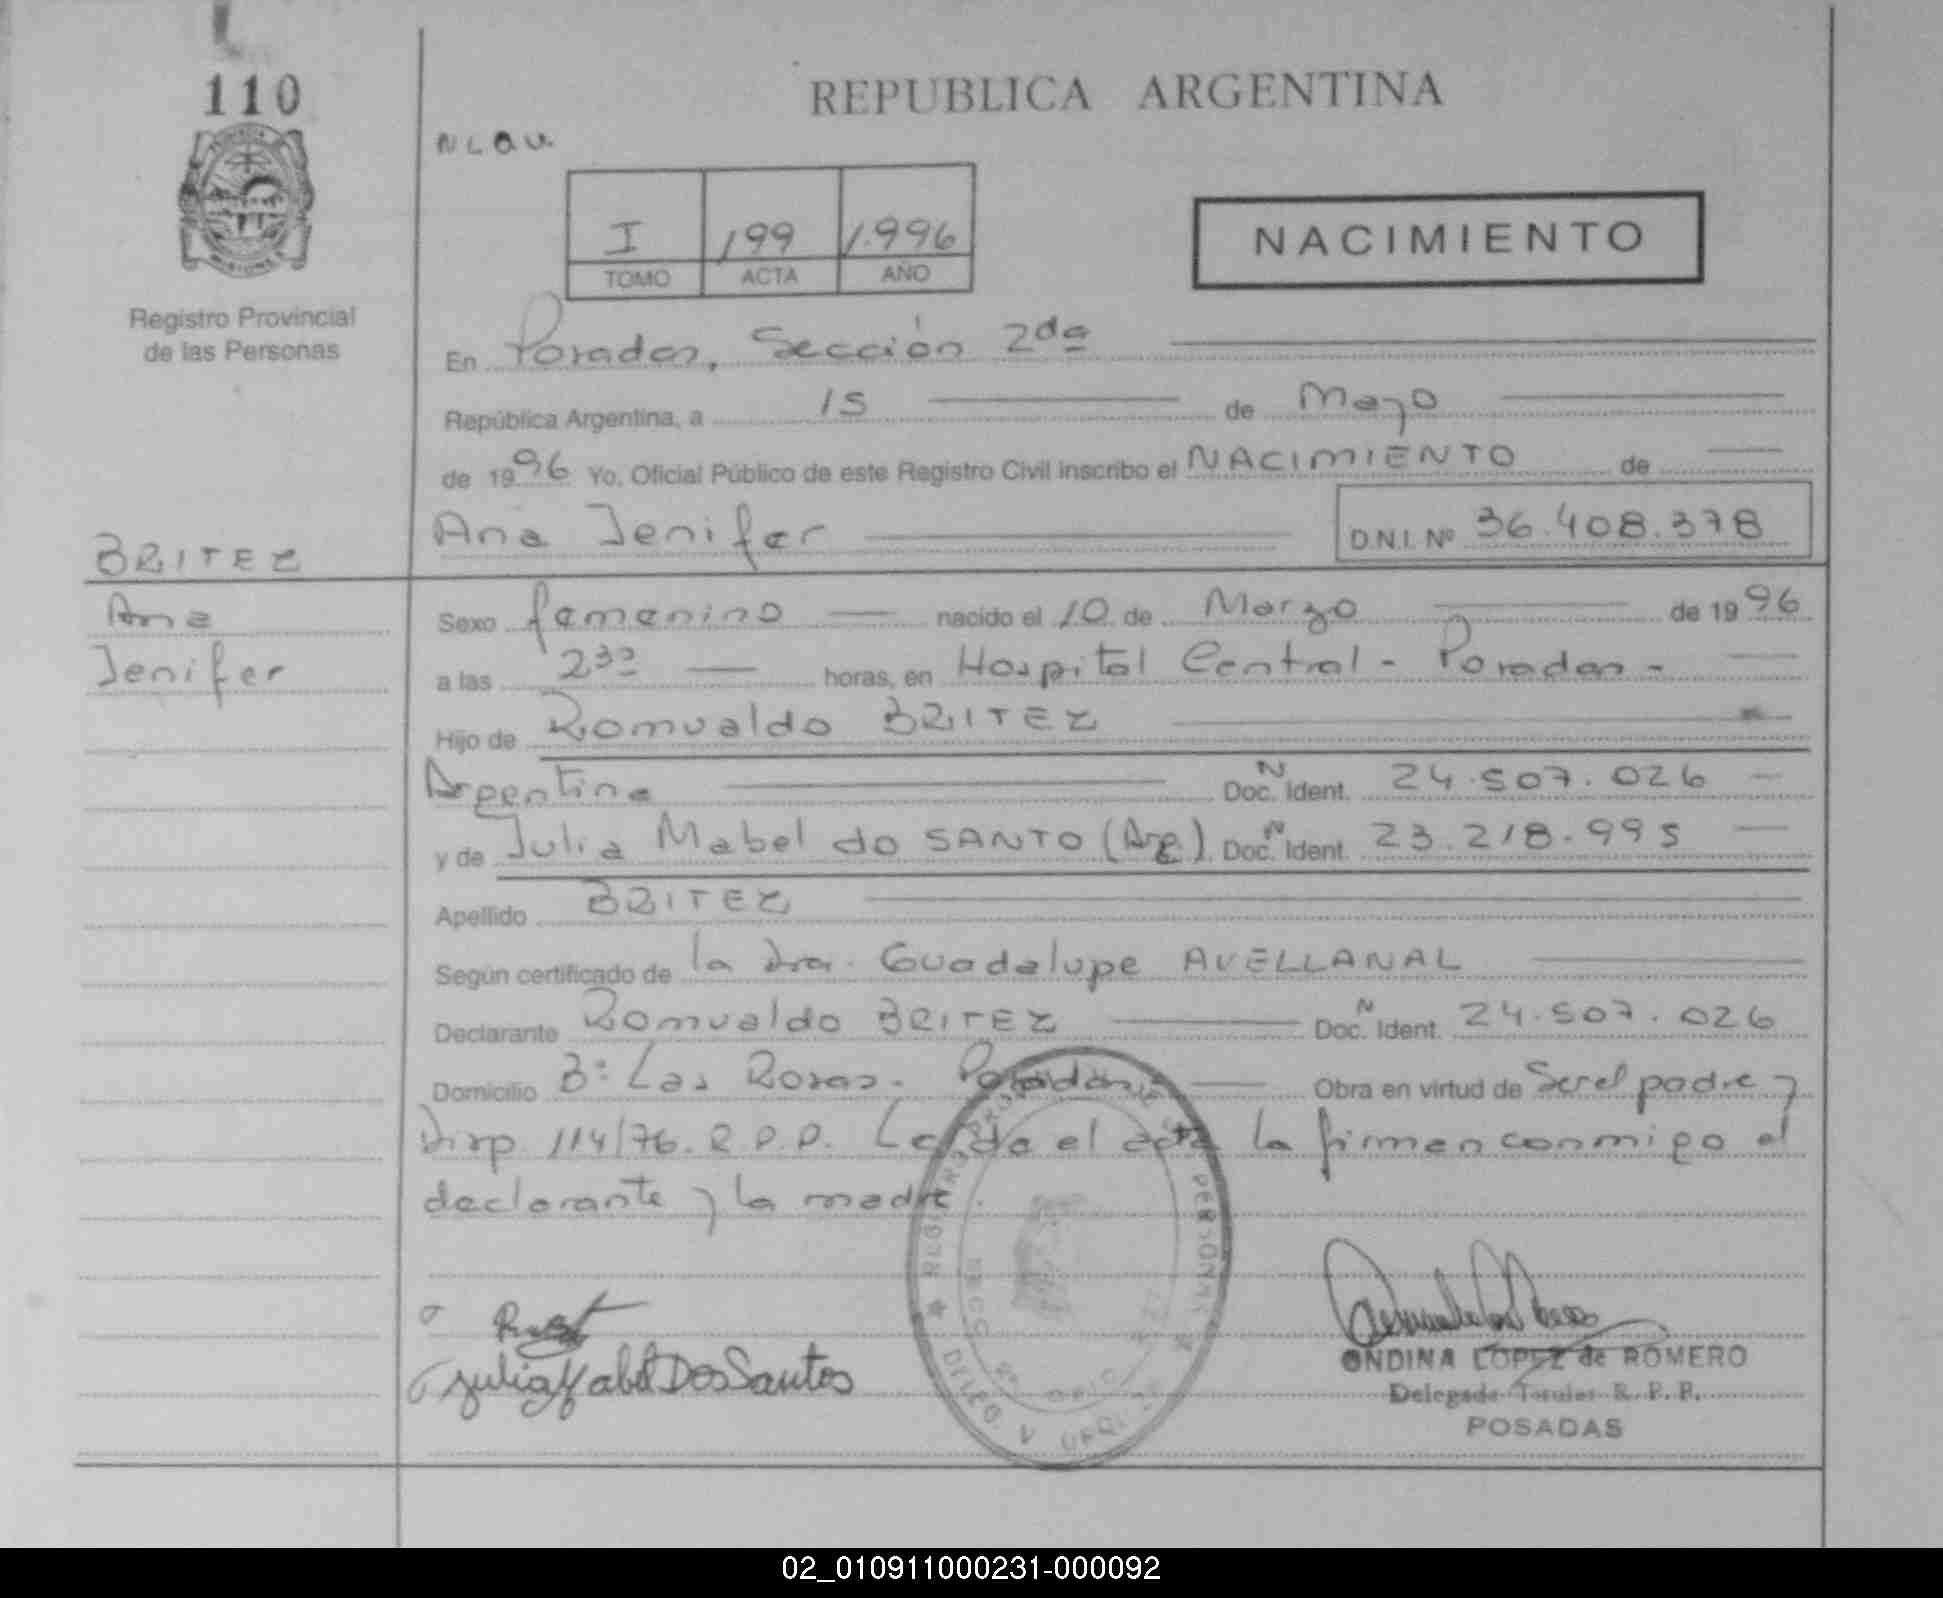 110
REPUBLICA ARGENTINA
I 199 1.996
TOMO ACTA AÑO
NACIMIENTO
Registro Provincial
de las Personas
En Posadas, Sección 2da
República Argentina, a 15 de Mayo
de 1996 Yo, Oficial Público de este Registro Civil inscribo el NACIMIENTO de
Ana Jenifer D.N.I. Nº 36.408.378
BRITEZ
Ana
Jenifer
Sexo femenino nacido el 10 de Marzo de 1996
a las 2³⁰ horas, en Hospital Central - Posadas -
Hijo de Romualdo BRITEZ
Argentina N Doc. Ident. 24.507.026
y de Julia Mabel do SANTO (Arg.) N Doc. Ident. 23.218.995
Apellido BRITEZ
Según certificado de la Dra. Guadalupe AVELLANAL
Declarante Romualdo BRITEZ N Doc. Ident. 24.507.026
Domicilio Bº Las Rosas. Posadas Obra en virtud de Ser el padre y
Disp. 114/76. R.P.P. Leída el acta la firman conmigo el
declarante y la madre.
Julia Mabel Dos Santos
ONDINA LOPEZ de ROMERO
Delegada Titular R. P. P.
POSADAS
02_010911000231-000092